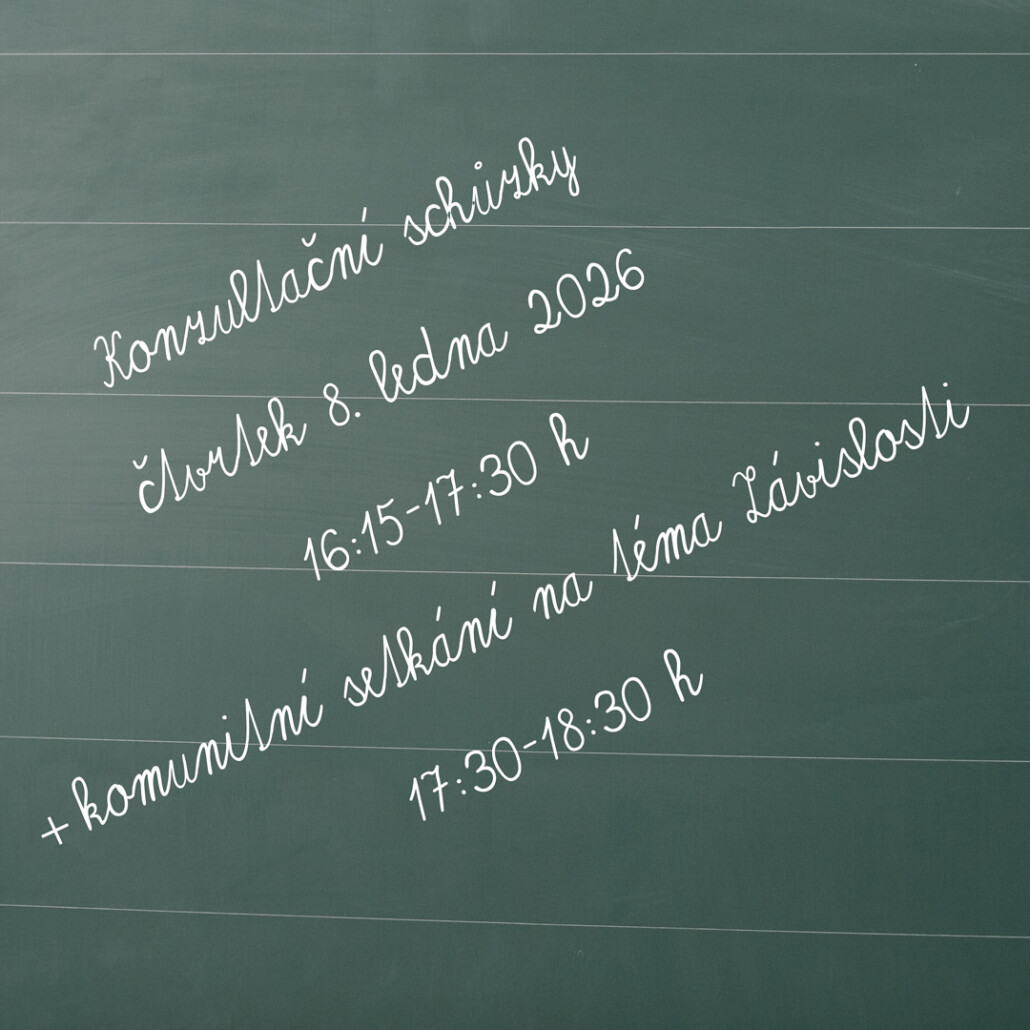 Konzultační schůzky
čtvrtek 8. ledna 2026
16:15-17:30 h
+ komunitní setkání na téma Závislosti
17:30-18:30 h